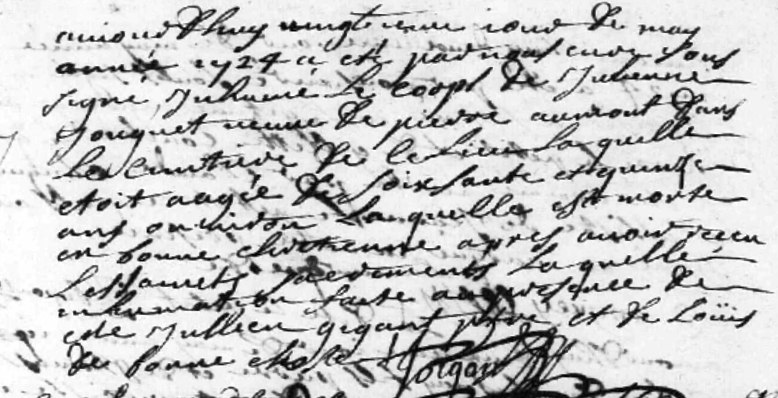 aujourdhuy vingtieme jour de may
année 1724 a esté par nous curé sous
signé inhumé le corps de Julienne
Jouquet veuve de pierre aumont dans
le cimtiere de ce lieu laquelle
etoit aagée de soixsante et quinse
ans onviron laquelle est morte
en bonne chretienne apres avoir receu
les saincts sacrements laquelle
inhumation faite au presence de
de Jullien gigant ptre et de Loüis
de bonne